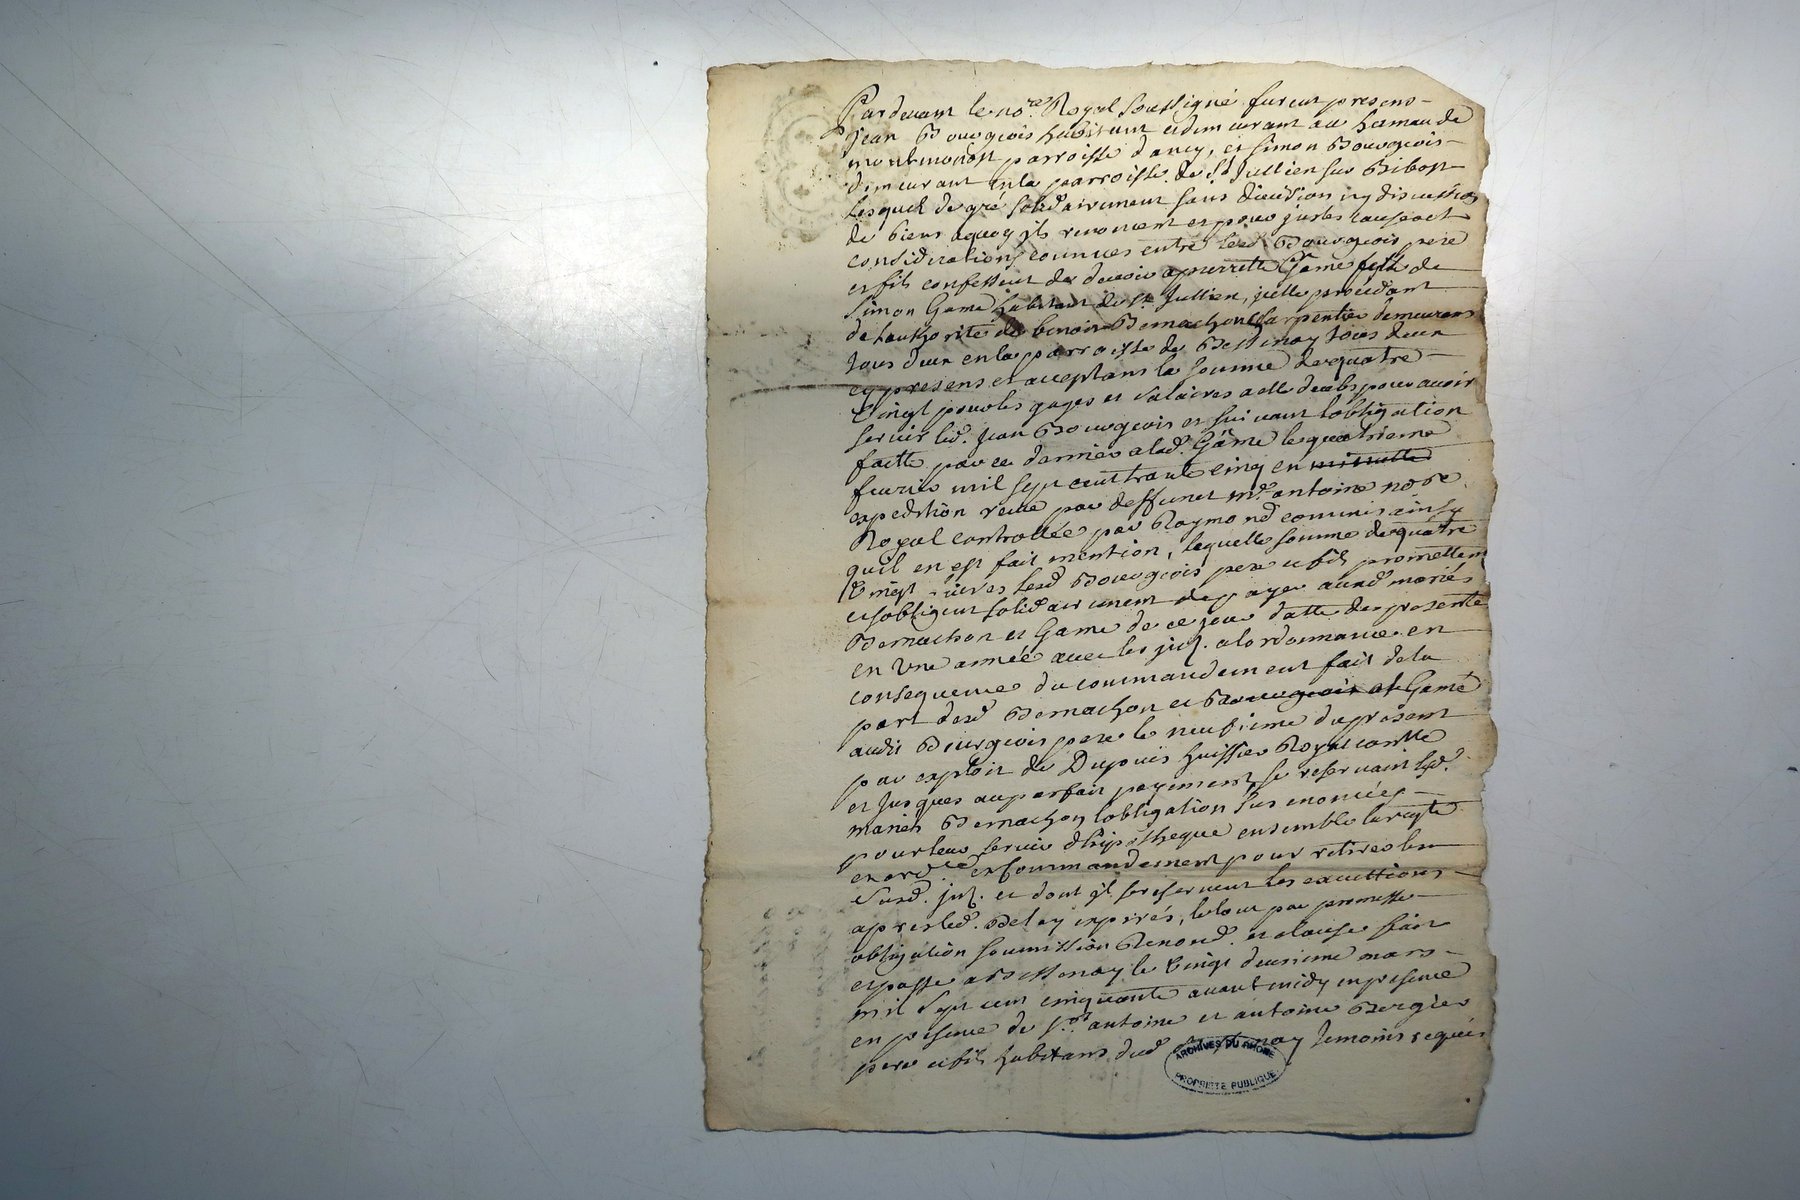 Pardevant le no.re Royal soussigné furent presens
Jean Bourgeois habitant et demeurant au hameau de
montmonon parroisse dancy, et simon Bourgeois
demeurant en la parroisse de St Jullien sur Bibost
Lesquels de gré solidairement sans division ny discution
de biens aquoy ils renoncent et pour justes causes et
considerations connues entre lesd. Bourgeois pere
et fils confessent de devoir a pierrette Game fille de
simon Game habitant de St Jullien, icelle procedant
de lauthorité de benoit Bernachon Charpentier demeurans
tous deux en la parroisse de Bessenay tous deux
cy presens et acceptans la somme de quatre
vingt pour les gages et salaires a elle deubs pour avoir
servir led. Jean Bourgeois et suivant lobligation
faitte par ce dernier a lad. Game le quatrieme
fevrier mil sept cent trante cinq en minutte
expedition reçue par deffunct m.e antoine no.re
Royal controllée par Raymond commis ainsy
quil en est fait mention, laquelle somme de quatre
vingt livres lesd Bourgeois pere et fils promettent
et sobligent solidairement de payer auxd mariés
Bernachon et Game de ce jour datte des presente
en une année avec les jnt. a lordonnance en
consequence du commandement fait de la
part desd Bernachon et Bourgeois et Game
audit Bourgeois pere le neufieme du present
par exploit de Dupuis huissier Royal
et jusques au parfait payement, se reservant lesd.
mariés Bernachon lobligation sus enoncée
pour leur servir dhipotheque ensemble
et commandement pour retirer les
susd. jnt. et dont ils se reservent les executtions
apres led. Delay expirés, le tout par promesse
obligation soumission Renond. et clause fait
et passe a Bessenay le vingt deuxieme mars
mil sept cent cinquante avant midy en presence
en presence de s.rs antoine et antoine Bergier
pere et fils habitans dud Bessenay temoins requis
ARCHIVES DU RHONE
PROPRIETE PUBLIQUE